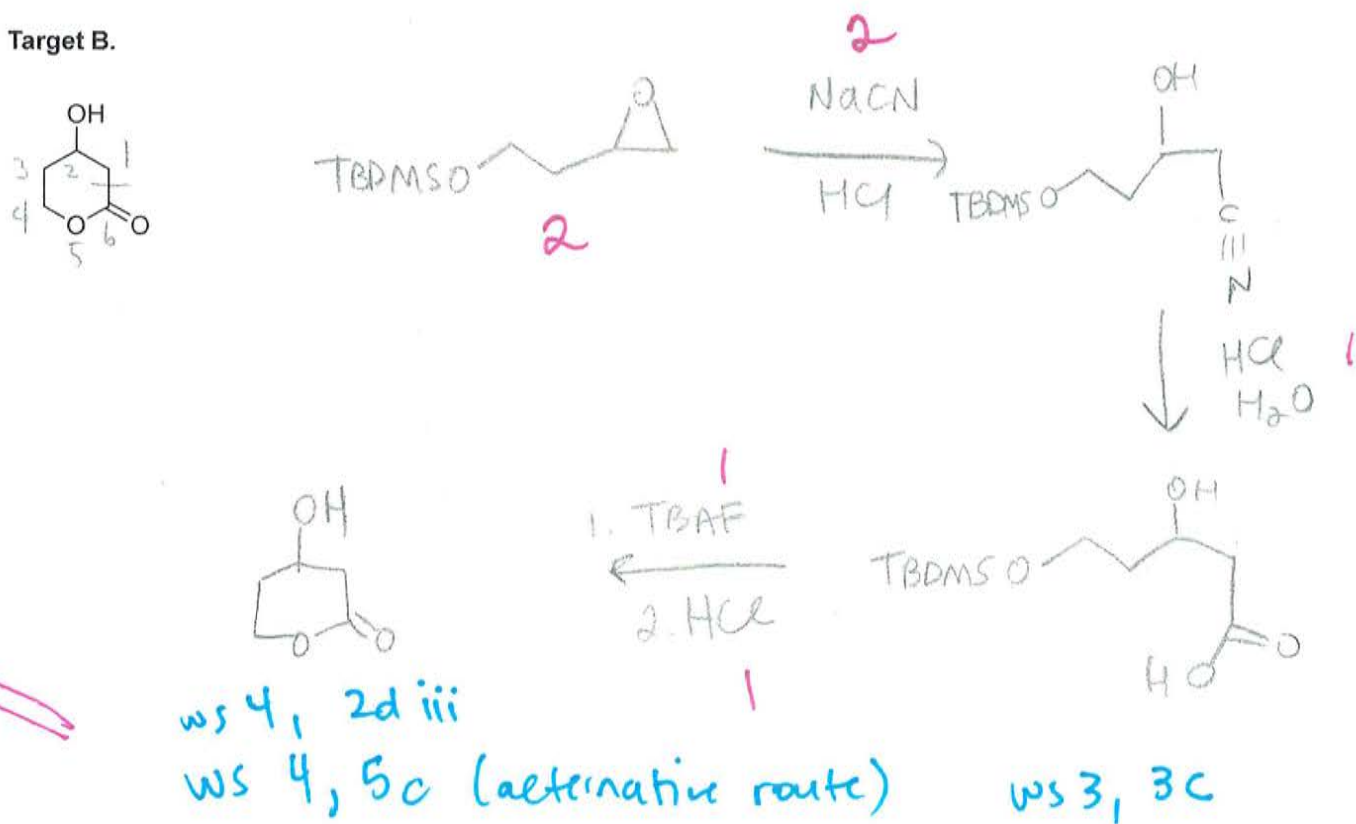 Target B.
OH
1
2
3
4
5
6
O
O
TBDMSO
O
2
2
NaCN
HCl
OH
TBDMSO
C
N
HCl
H2O
1
OH
TBDMSO
O
HO
1
1. TBAF
2. HCl
1
OH
O
O
ws 4, 2d iii
ws 4, 5c (alternative route)
ws 3, 3c